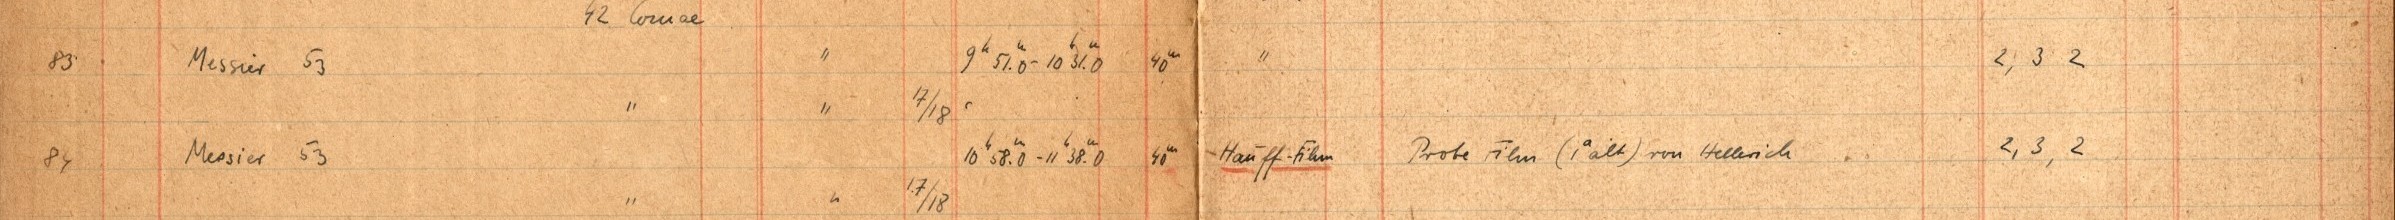 42 Comae
83 Messier 53 " 9h 51.m0 - 10h 31.m0 40m " 2, 3 2
" " 17/18
84 Messier 53 10h 58.m0 - 11h 38.m0 40m Hauff-Film Probe Film (1a alt) von Hellerich 2, 3, 2
" " 17/18